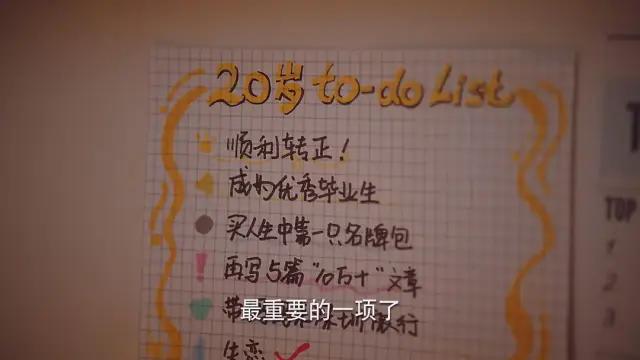 20岁to-do List
顺利转正!
成为优秀毕业生
买人生中第一只名牌包
再写5篇"10万+"文章
带
旅行
最重要的一项了
生恋
TOP
1
2
3